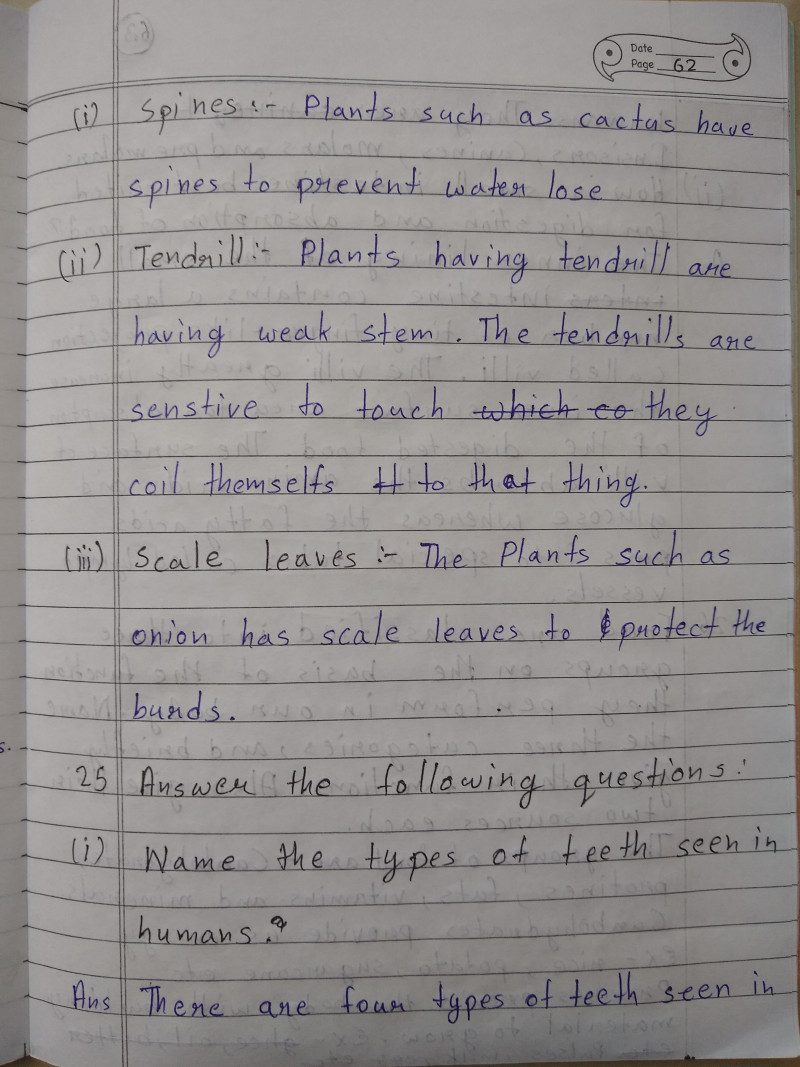 Date
Page 62
(i) Spines :- Plants such as cactus have
spines to prevent water lose
(ii) Tendrill :- Plants having tendrill are
having weak stem. The tendrills are
senstive to touch which co they
coil themselfs to that thing.
(iii) Scale leaves :- The Plants such as
onion has scale leaves to protect the
burds.
25 Answer the following questions:
(i) Name the types of teeth seen in
humans.?
Ans There are four types of teeth seen in